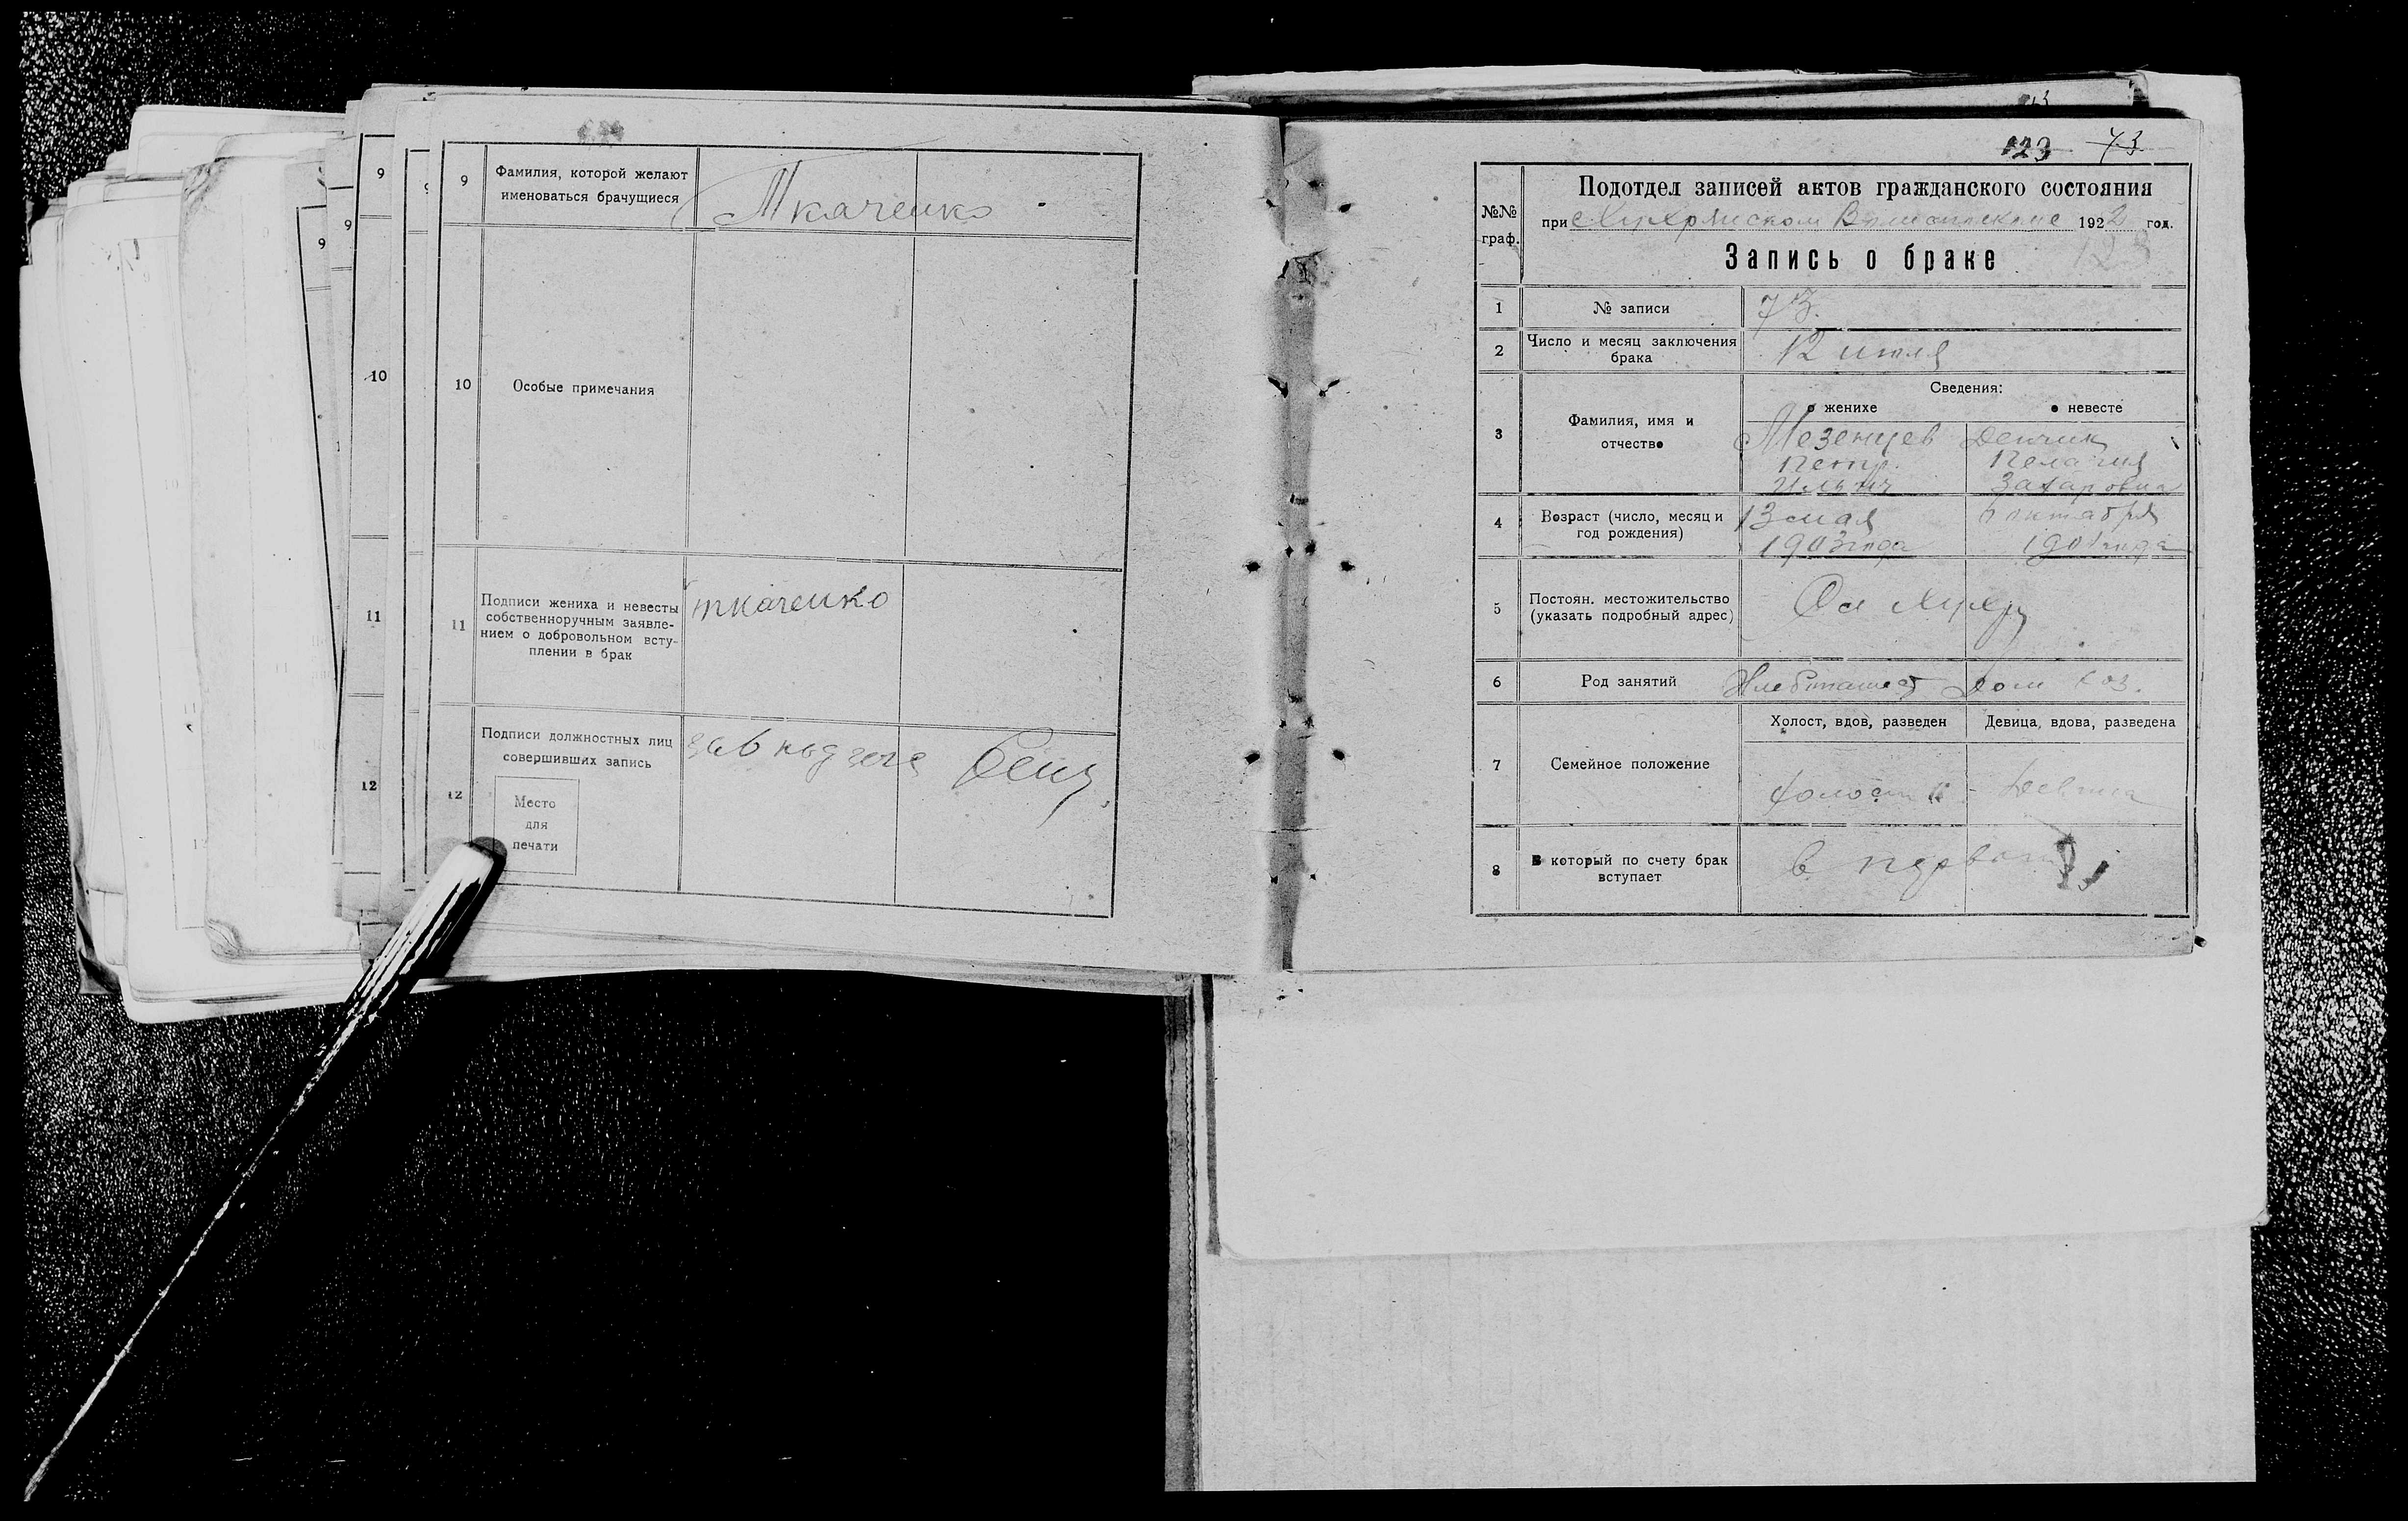 9
Фамилия, которой желают
именоваться брачущиеся
Ткаченко
10
Особые примечания
11
Подписи жениха и невесты
собственноручным заявле-
нием о добровольном всту-
плении в брак
ткаченко
12
Подписи должностных лиц
совершивших запись
зав
Место
для
печати
9
10
11
12
9
9
123 73
№№
граф.
Подотдел записей актов гражданского состояния
при 1922 год.
Запись о браке
123
1
№ записи
73.
2
Число и месяц заключения
брака
12 июля
Сведения:
о женихе
о невесте
3
Фамилия, имя и
отчество
Мезенцев
Петр
Ильич
Пелагия
Захаровна
4
Возраст (число, месяц и
год рождения)
13 мая
1903 года
октября
5
Постоян. местожительство
(указать подробный адрес)
6
Род занятий
Дом хоз.
7
Семейное положение
Холост, вдов, разведен
Девица, вдова, разведена
холост
Девица
8
В который по счету брак
вступает
в первый